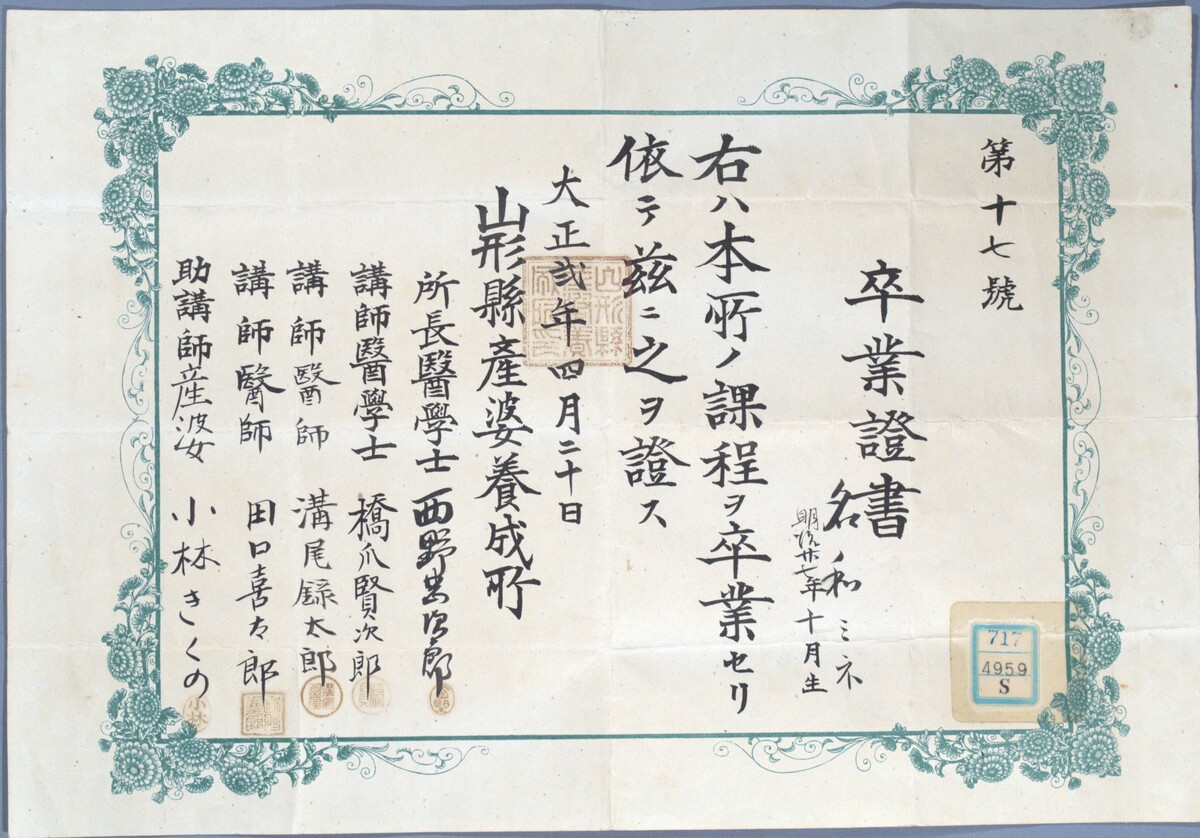 第十七號
卒業證書
名ノ和ミネ
明治廿七年十月生
右ハ本所ノ課程ヲ卒業セリ
依テ茲ニ之ヲ證ス
大正弐年四月二十日
山形縣産婆養成所
所長醫學士 西野忠次郎
講師醫學士 橋爪賢次郎
講師醫師 溝尾録太郎
講師醫師 田口喜太郎
助講師産婆 小林きくの
小林
717
4959
S